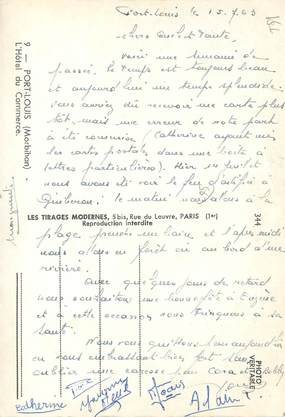 Port-Louis le 15.7.63
chers oncle et tante
voici une semaine de
passée. Le temps est toujours beau
et aujourd'hui un temps splendide.
vous auriez dû recevoir une carte plus
tôt, mais une erreur de notre part
a été commise (Catherine ayant mis
les cartes postales dans une boîte à
lettres particulières). Hier 14 juillet
nous avons été voir le feu d'artifice à
Quiberon. Le matin nous allons à la
plage prendre un bain et l'après midi
nous allons en forêt ou au bord d'une
rivière.
Avec quelques jours de retard
nous souhaitons une bonne fête à
et à cette occasion nous trinquons à sa
santé.
Nous vous quittons pour aujourd'hui
en vous embrassant bien fort sans
oublier une caresse pour
Catherine
Alain
9 — PORT-LOUIS (Morbihan)
L'Hôtel du Commerce.
LES TIRAGES MODERNES, 5 bis, Rue du Louvre, PARIS (1er)
Reproduction interdite
344
PHOTO
VERITABLE